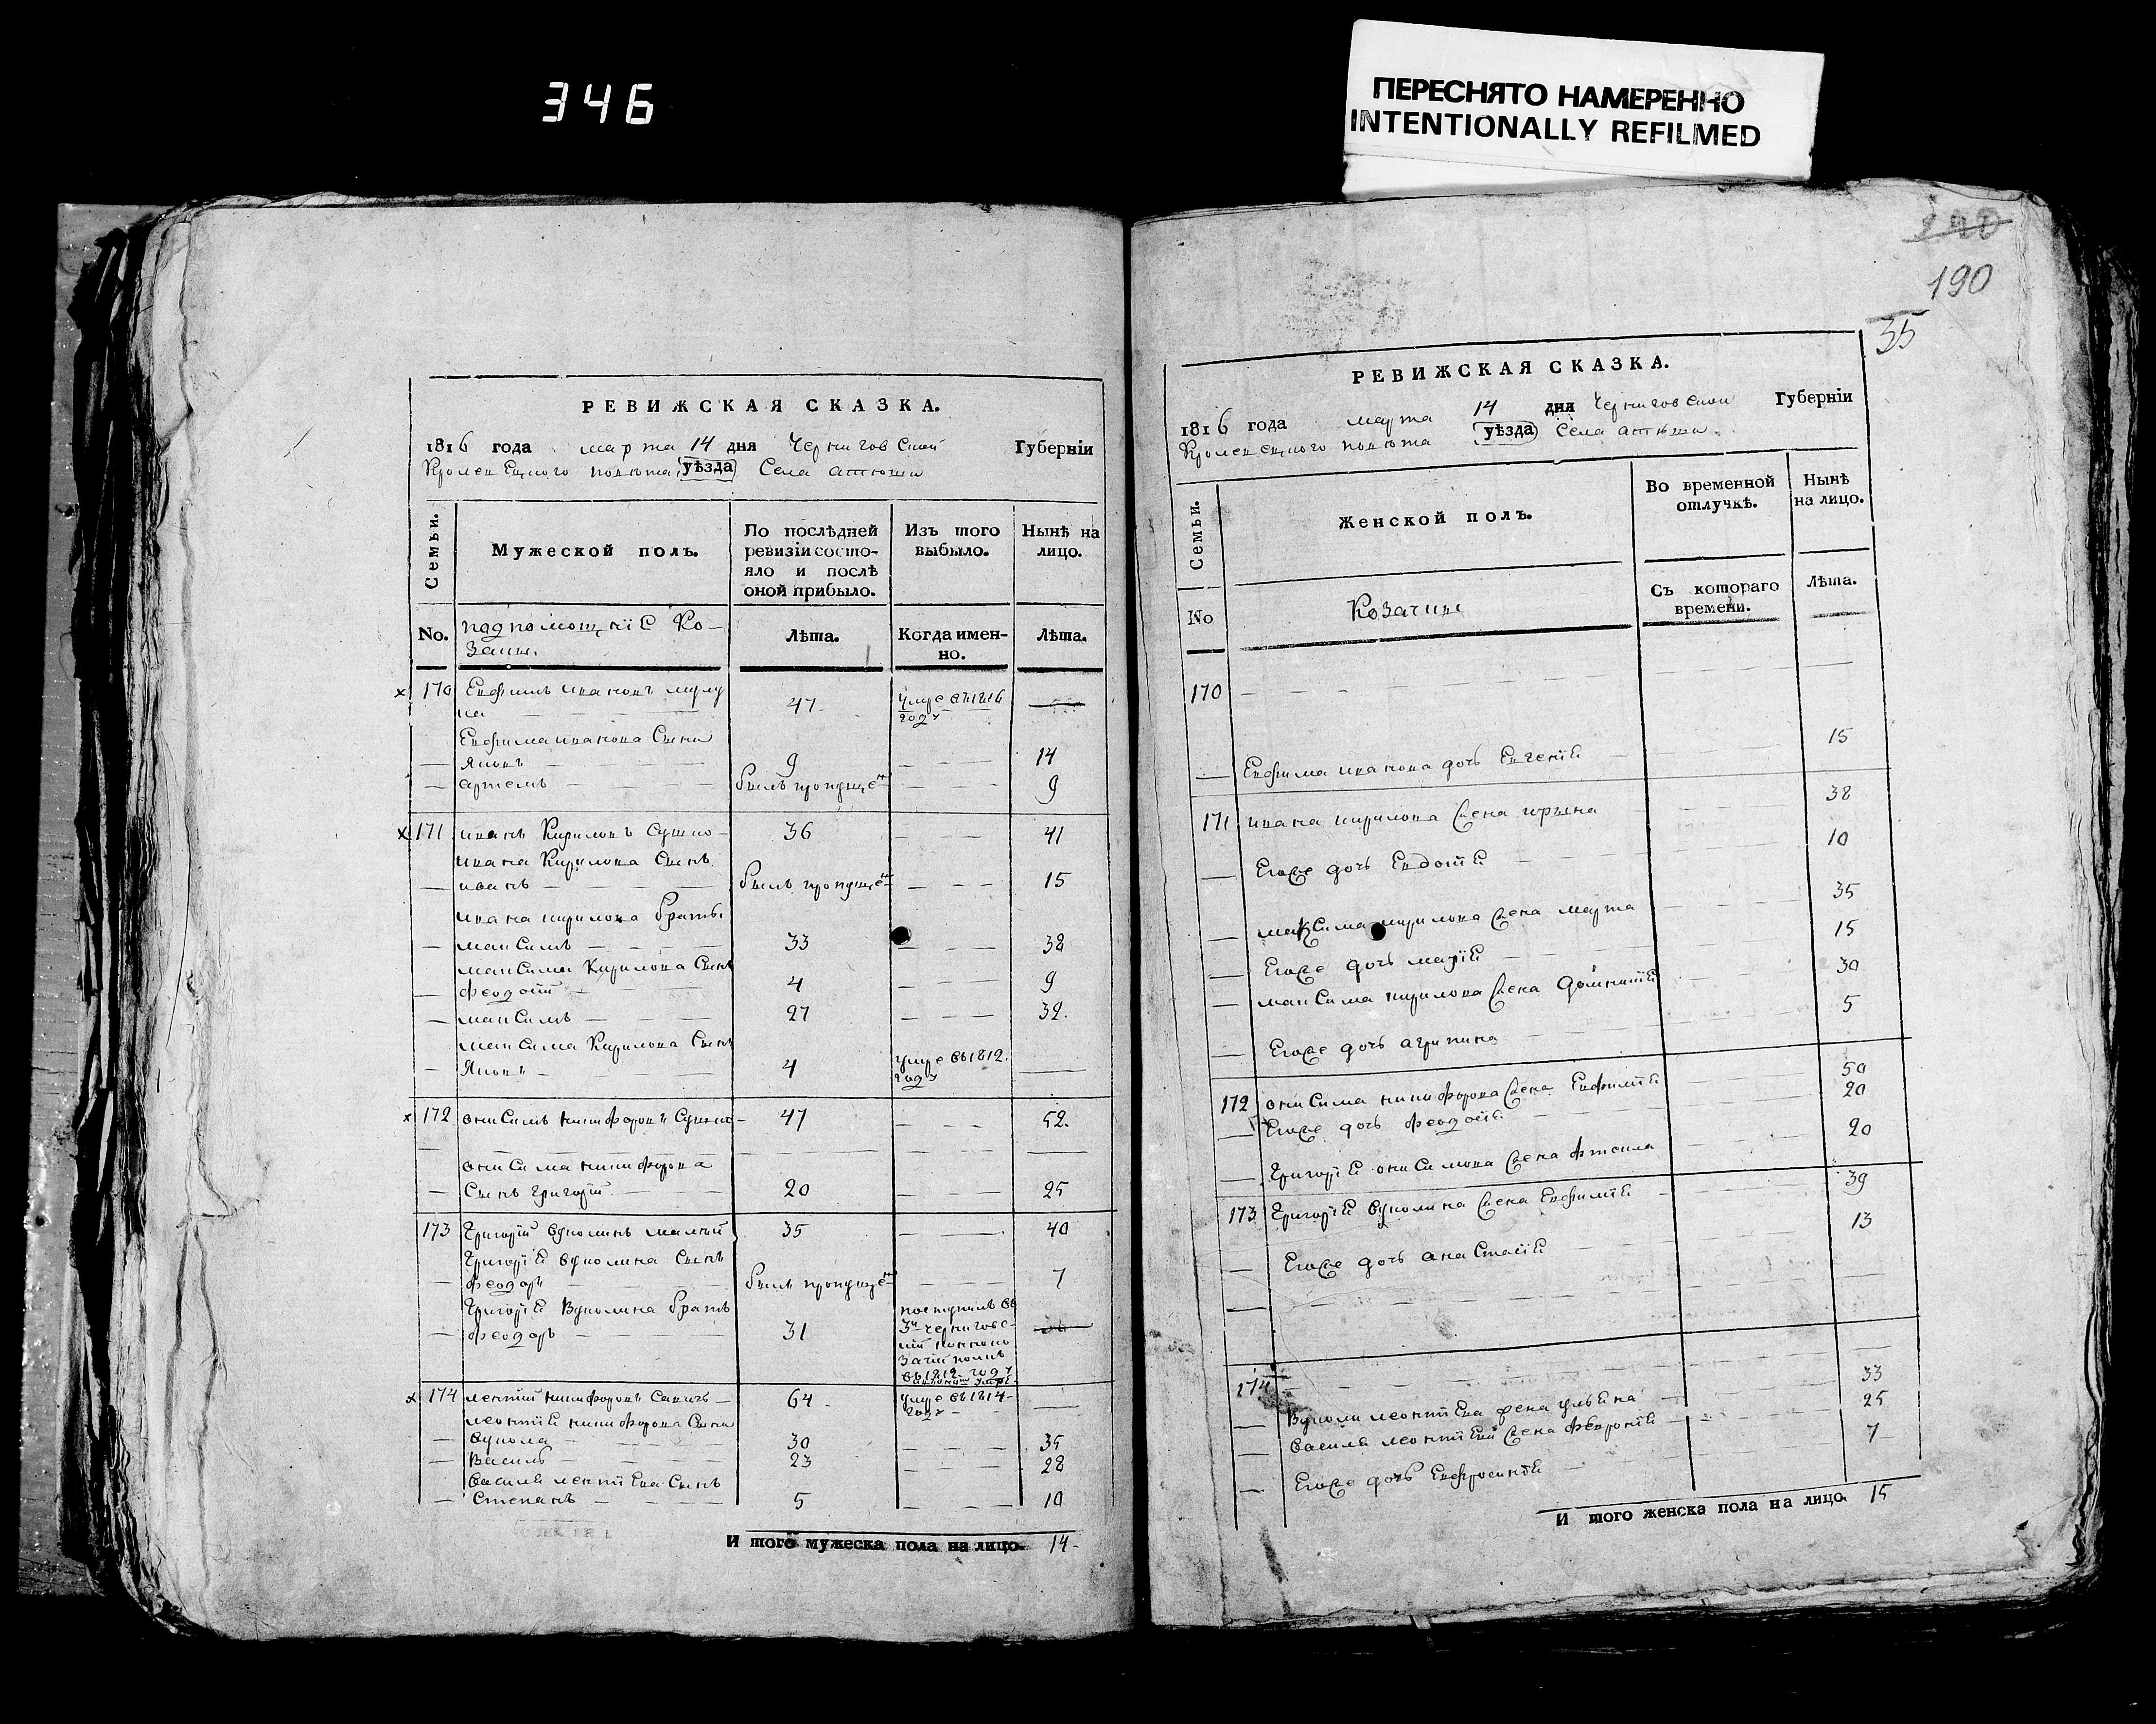 346
ПЕРЕСНЯТО НАМЕРЕННО
INTENTIONALLY REFILMED
РЕВИЖСКАЯ СКАЗКА.
1816 года марта 14 дня Черниговской Губерніи
повѣта уѣзда Села
Семьи.
Мужеской полъ.
По послѣдней
ревизіи состо-
яло и послѣ
оной прибыло.
Изъ того
выбыло.
Нынѣ на
лицо.
No.
подпомощніе Ко-
заки.
Лѣта.
Когда имен-
но.
Лѣта.
170 Евфимъ Ивановъ 47 умре въ 1816
году
Евфима Иванова Сыни
Яковъ 9 14
артемъ былъ пропущен 9
171 иванъ Кириловъ Сушко 36 41
ивана Кирилова Сынъ
иванъ былъ пропущен 15
ивана кирилова братьи
максимъ 33 38
максима Кирилова Сынъ
феодотъ 4 9
максимъ 27 32.
максима Кирилова Сынъ
Яковъ 4 умре въ 1812.
году
172 онисимъ никифоровъ 47 52.
онисима никифорова
Сынъ григорій 20 25
173 Григорій вуколинъ малый 35 40
Григорія вуколина Сынъ
феодоръ былъ пропущен 7
Григорія Вуколина братъ
феодоръ 31
поступилъ въ
3й Чернигов-
въ 1812 году
174 никифоровъ Савичъ 64 умре въ 1814
году
леонтія никифорова Сыни
вукола 30 35
Василь 23 28
василя Сынъ
Степанъ 5 10
И того мужеска пола на лицо. 14
190
35
РЕВИЖСКАЯ СКАЗКА.
1816 года марта 14 дня Черниговской Губерніи
повѣта уѣзда Села
Семьи.
Женской полъ.
Во временной
отлучкѣ.
Нынѣ
на лицо.
No
Козачки
Съ котораго
времени.
Лѣта.
170
Евфима иванова дочь Евгенія 15
171 ивана кирилова жена ирына 38
Егоже дочь Евдотія 10
максима кирилова жена марта 35
Егоже дочь марія 15
максима кирилова жена домникія 30
Егоже дочь агрипина 5
172 онисима никифорова жена Евфимія 50
Егоже дочь феодосія 20
Григорія онисимова жена 20
173 Григорія вуколина жена Евфимія 39
Егоже дочь анастасія 13
174
Вуколи леонтіева жена ульяна 33
василя леонтіева жена феврония 25
Егоже дочь Евфросинія 7
И того женска пола на лицо. 15